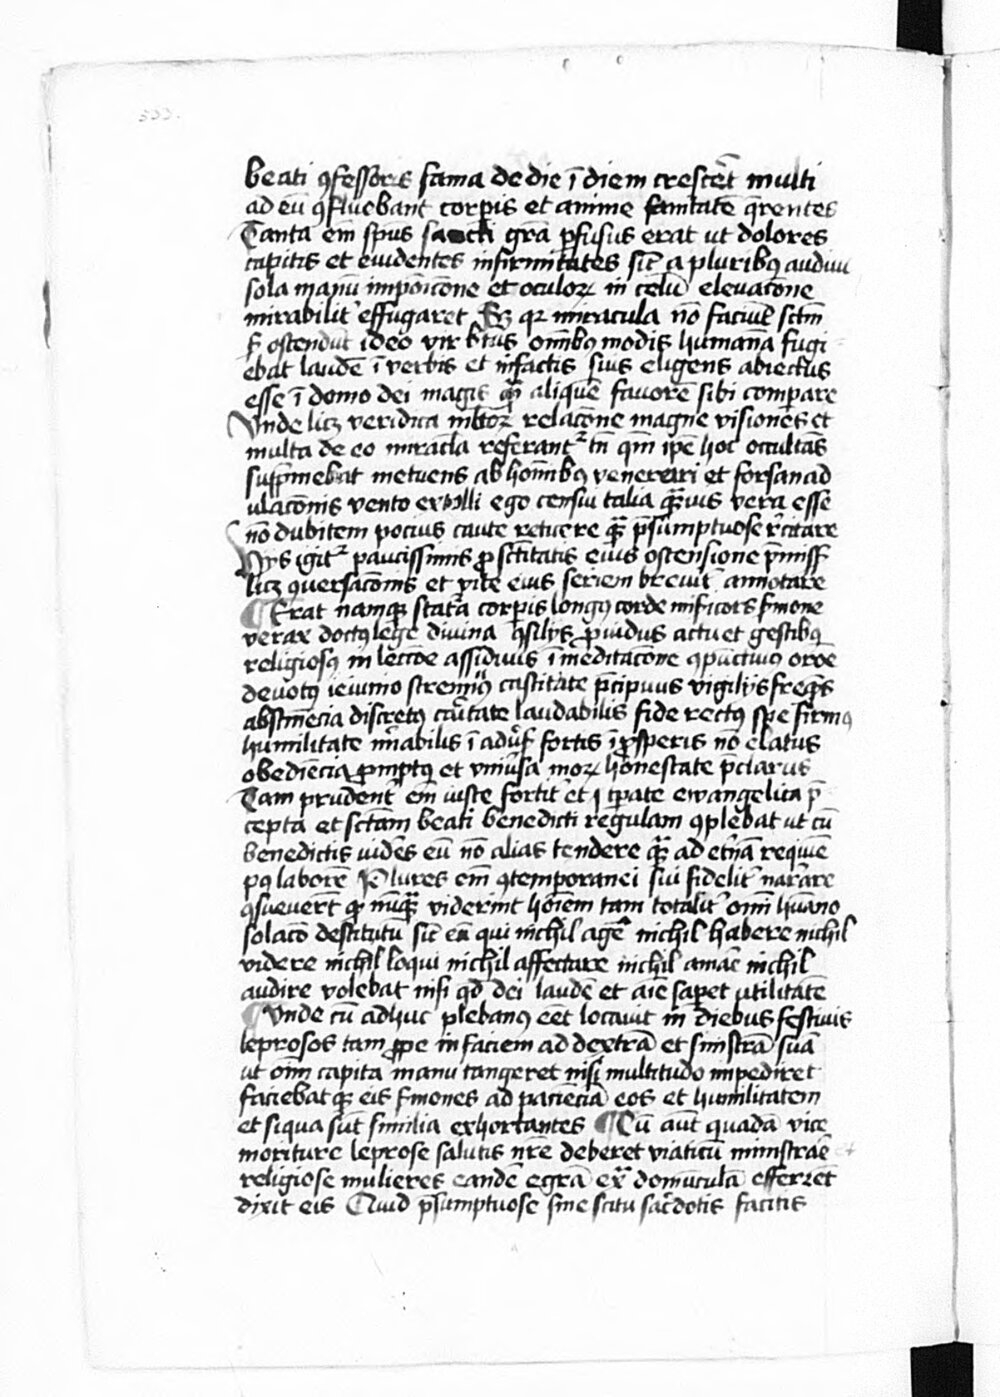 333.
beati ꝯfessoris fama de die ī diem crescēt multi
ad eū ꝯfluebant corpīs et anime sanitatē q̄rentes
Tanta em̄ sp̄us sancti grā pfusus erat ut dolores
capitis et euidentes infirmitates sic̄ a pluribꝫ audiui
sola manū impōicōne et oculoꝝ in celū elevacōne
mirabilit̄ effugaret Et qꝛ miracula nō faciūt sctm̄
sꝫ ostendūt ideo vir btūs om̄ibꝫ modis humanā fugi
ebat laudē ī verbis et in factis suis eligens abiectus
esse ī domo dei magis qm̄ aliquē fauorē sibi compare
Vnde licꝫ veridica mltoꝝ relacōne magne visiones et
multa de eo miracl̄a referant̄ tn̄ qm̄ ip̄e hoc occultās
supp̄mebat metuens ab hom̄ibꝫ venerari et forsan ad
ulacōnis vento extolli ego censui talia qͣuis vera esse
nō dubitem pocius caute reticere qͣꝫ p̄sūmptuose rēcitare
Hys igit̄ paucissimis ꝓ sc̄titatis eius ostensione p̄miss̄
licꝫ ꝯuersacōnis et vite eius seriem breuit̄ annotare
¶ Erat namqꝫ statͣa corpīs longꝰ corde mīsicors s̄mone
verax doctꝰ lege diuina ꝯsilys ꝓuidus actu et gestibꝫ
religiosꝰ in leccōe assiduus ī meditacōne ꝯpunctiuus orōe
deuotꝰ ieiunio strenuꝰ castitate p̄cipuus vigilys freqn̄s
abstinēcia discretꝰ cāitate laudabilis fide rectꝰ spe firmꝰ
humilitate mīabilis ī adūs̄ fortis ī ꝓsperis nō elatus
obediēcia ꝓmptꝰ et vniūsa moꝝ honestate p̄clarus
Tam prudent̄ em̄ iuste fortit̄ et tp̄ate ewangelica p̄
cepta et sctam̄ beati benedicti regulam ꝯplebat ut cū
benedictis uidēs eū nō alias tendere qͣꝫ ad et̄nā requiē
pꝰ laborē Plures em̄ ꝯtemporanei sui fidelit̄ narͣre
ꝯsueuerūt qꝫ nūqͣꝫ viderint hoīem tam totalit̄ om̄i hūano
solacō destitutū sic̄ eū qui nichil agēe nichil habere nichil
videre nichil loqui nichil affectare nichil amāe nichil
audire volebat nisi qd̄ dei laudē et aīe sapet utilitatē
¶ Vnde cū adhuc plebanꝰ eēt locauit in diebus festiuis
leprosos tam ꝓpe in faciem ad dextrā et sinistrā suā
ut oīm capita manu tangeret nisi multitudo impediret
faciebatqꝫ eis s̄mones ad paciēciā eos et humilitatem
et siqua sūt similia exhortantes ¶ Cū aūt quadā vice
moriture leprose salutis nr̄e deberet viaticū ministrāe et
religiose mulieres eandē egrā exͣ domūculā efferrēt
dixit eis Quid p̄sumptuose sine scitu sac̄dotis facitis